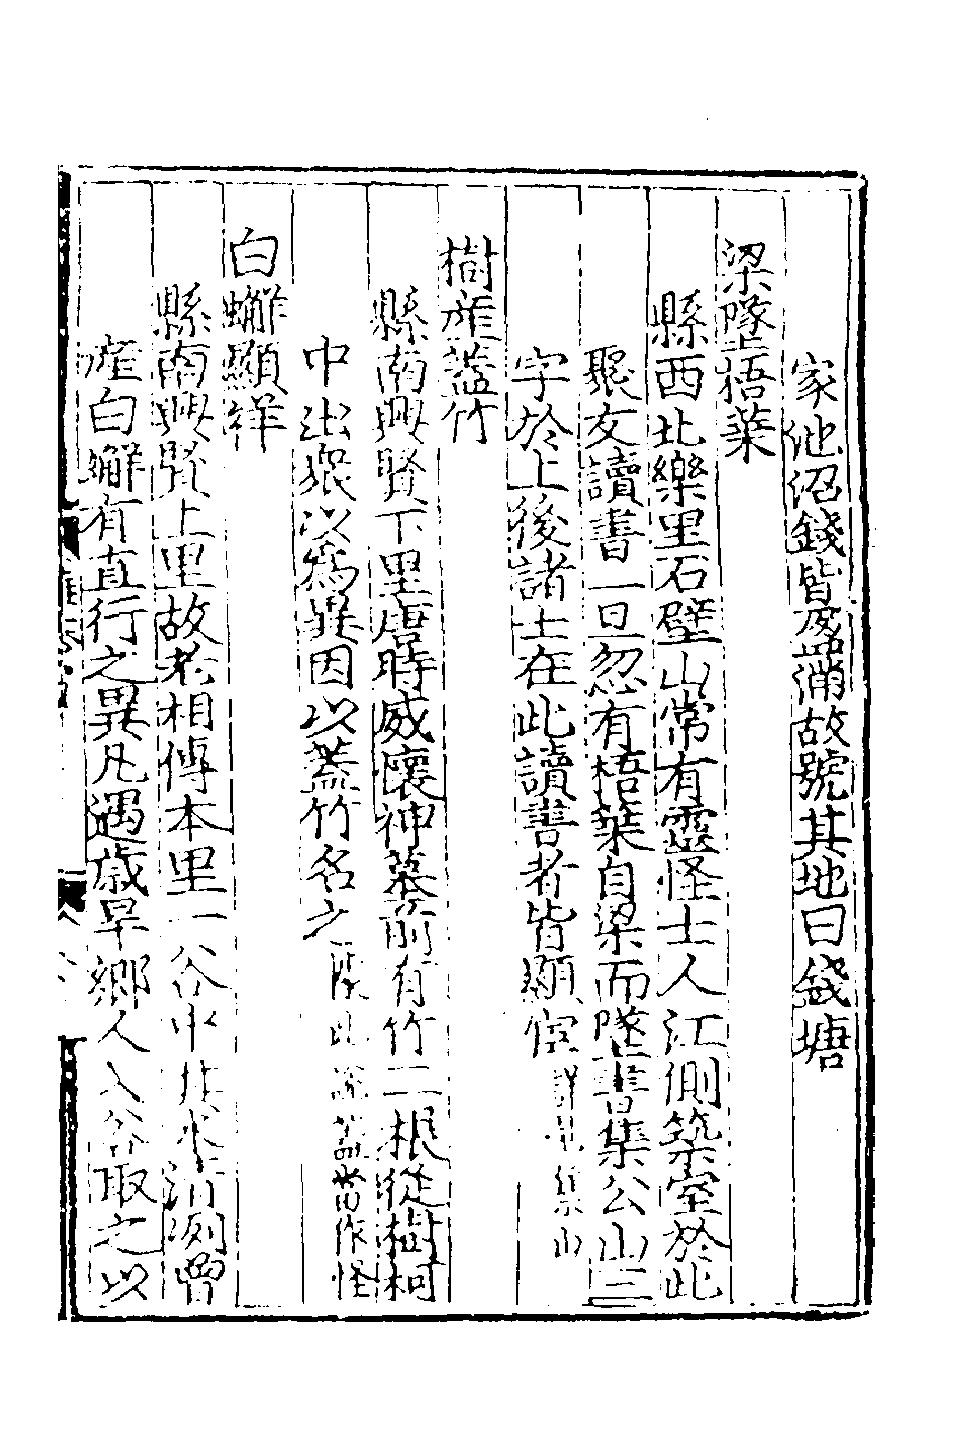 家池沼錢皆盈滿故號其地曰錢塘
梁墜梧葉
縣西北樂里石壁山常有靈怪士人江側築室於此
聚友讀書一旦忽有梧葉自梁而墜書集公山三
字於上後諸士在此讀書者皆顯宦詳見集山
樹産蓋竹
縣南興賢下里唐時威懷神墓前有竹二根從樹柯
中出衆以爲異因以蓋竹名之 此 蓋當作怪
白蠏顯祥
縣南興賢上里故老相傳本里一谷中其水清冽曾
産白蠏有直行之異凡遇歳旱鄉人入谷取之以